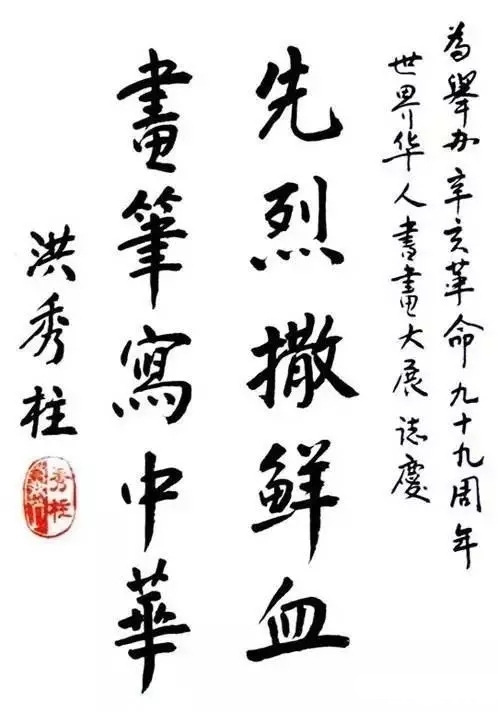 為舉办辛亥革命九十九周年
世界华人書畫大展誌慶
先烈撒鲜血
畫筆寫中華
洪秀柱